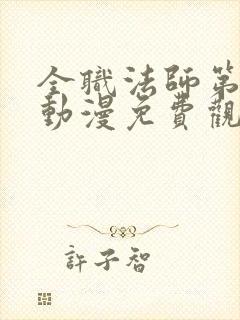 全職法師第
動漫免費觀
許子智